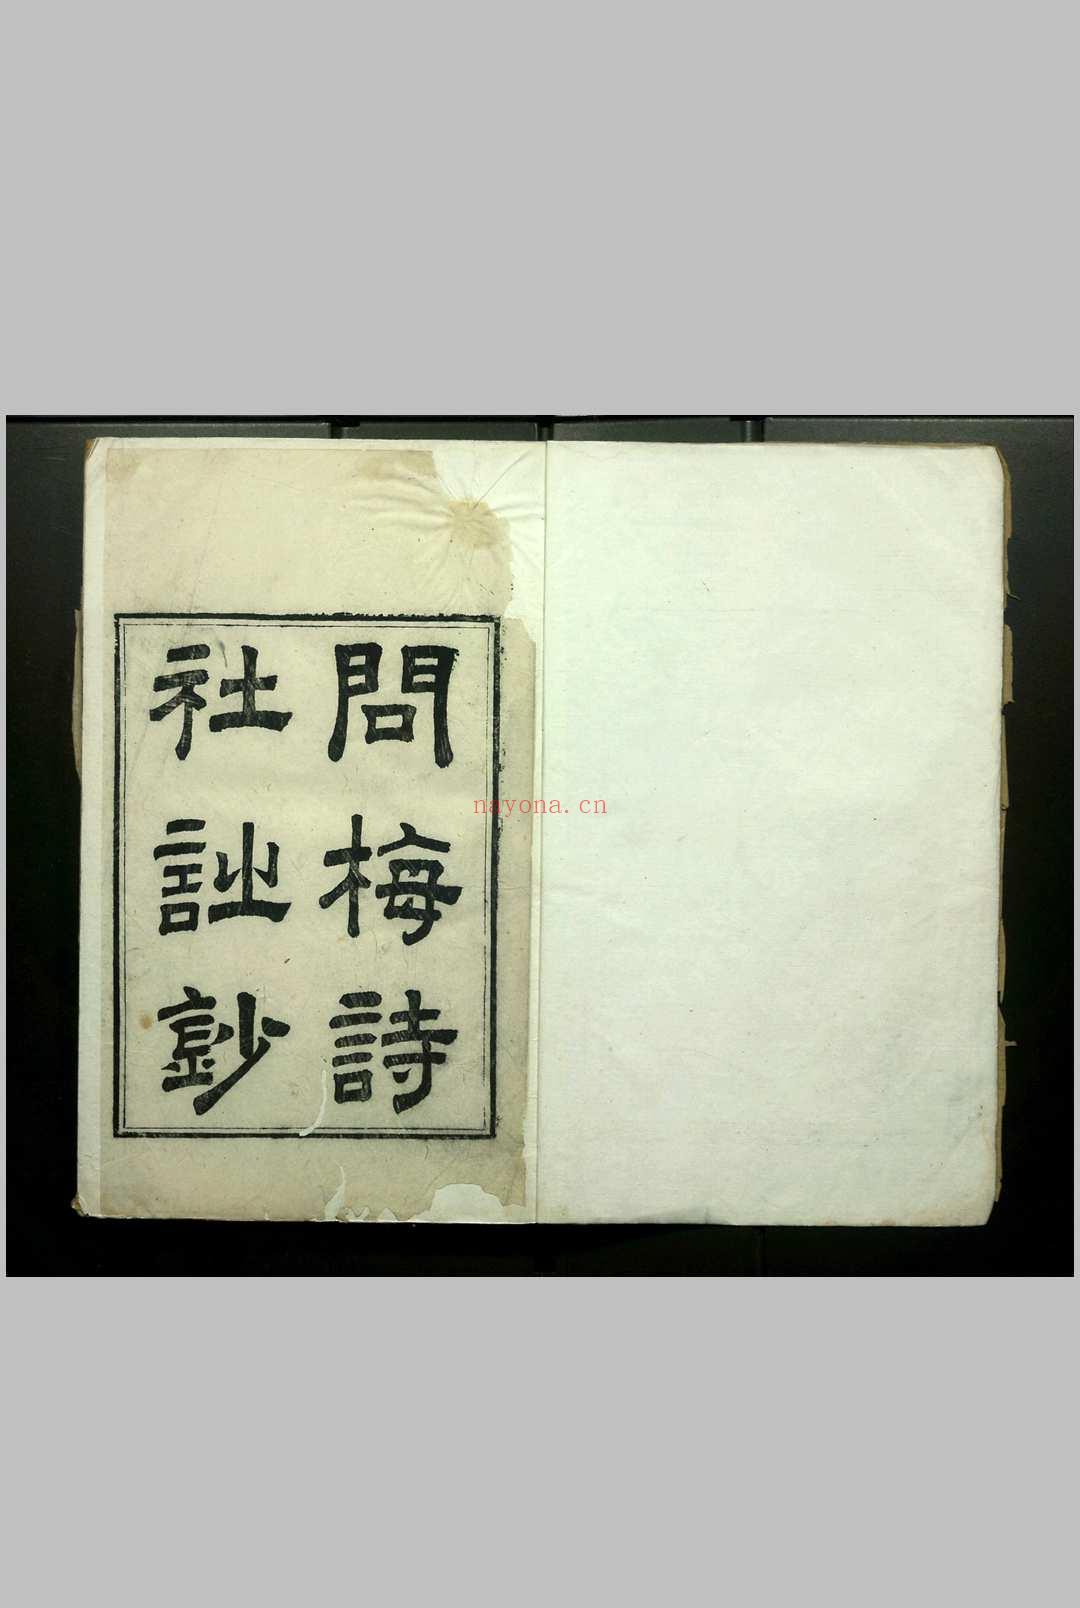 問梅詩
社𧥳鈔
nayona.cn